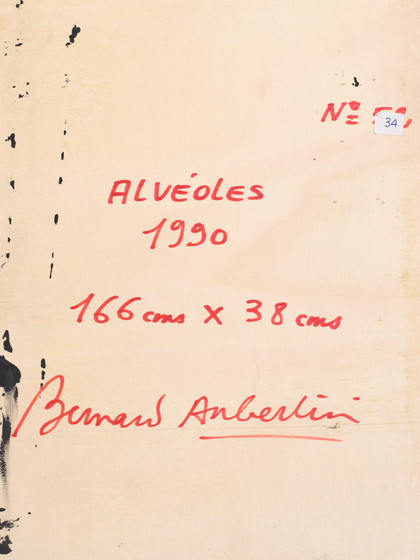 Nº
34
ALVÉOLES
1990
166 cms X 38 cms
Bernard Aubertin